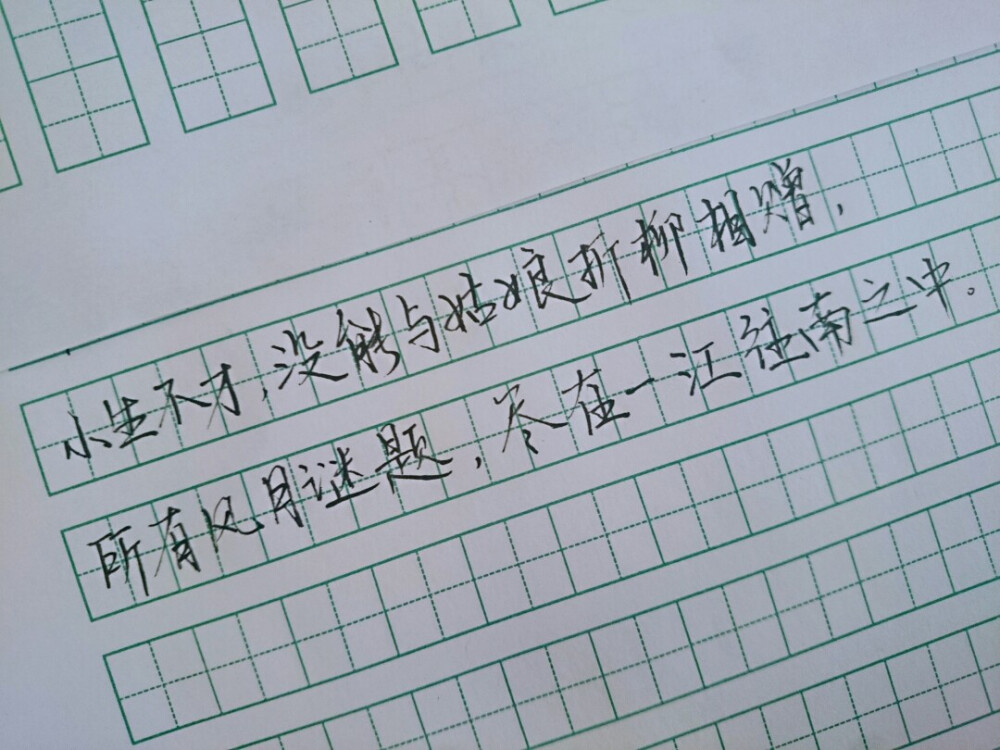 小生不才,没能与姑娘折柳相赠,
所有风月谜题,尽在一江往南之中。